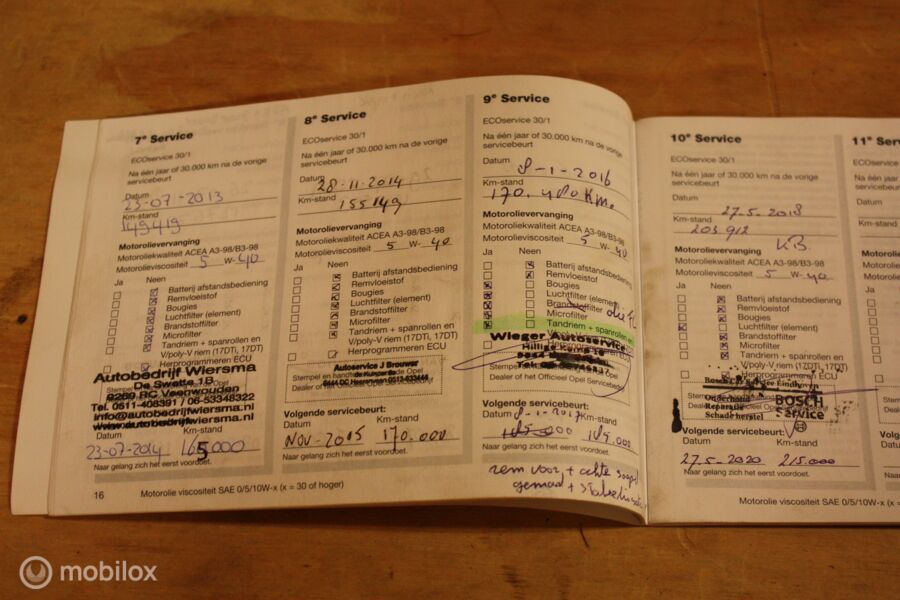 7e Service
ECOservice 30/1
Na één jaar of 30.000 km na de vorige
servicebeurt
Datum
23-07-2013
Km-stand
149419
Motorolievervanging
Motoroliekwaliteit ACEA A3-98/B3-98
Motorolieviscositeit 5 W-40
Ja Neen
Batterij afstandsbediening
Remvloeistof
Bougies
Luchtfilter (element)
Brandstoffilter
Microfilter
Tandriem + spanrollen en
V/poly-V riem (17DTi, 17DT)
Herprogrammeren ECU
Autobedrijf Wiersma
De Swette 1B
9269 RC Veenwouden
Tel. 0511-408391 / 06-53348322
info@autobedrijfwiersma.nl
www.autobedrijfwiersma.nl
Datum Km-stand
23-07-2014 165000
Naar gelang zich het eerst voordoet.
16 Motorolie viscositeit SAE 0/5/10W-x (x = 30 of hoger)
8e Service
ECOservice 30/1
Na één jaar of 30.000 km na de vorige
servicebeurt
Datum
28-11-2014
Km-stand
155149
Motorolievervanging
Motoroliekwaliteit ACEA A3-98/B3-98
Motorolieviscositeit 5 W-40
Ja Neen
Batterij afstandsbediening
Remvloeistof
Bougies
Luchtfilter (element)
Brandstoffilter
Microfilter
Tandriem + spanrollen en
V/poly-V riem (17DTi, 17DT)
Herprogrammeren ECU
Autoservice J Brouwer
Volgende servicebeurt:
Datum Km-stand
Nov-2015 170.000
Naar gelang zich het eerst voordoet.
9e Service
ECOservice 30/1
Na één jaar of 30.000 km na de vorige
servicebeurt
Datum
8-1-2016
Km-stand
170.480 Km.
Motorolievervanging
Motoroliekwaliteit ACEA A3-98/B3-98
Motorolieviscositeit 5 W-40
Ja Neen
Batterij afstandsbediening
Remvloeistof
Bougies
Luchtfilter (element)
Brandstoffilter
Microfilter
Tandriem + spanrollen en
Wieger Autoservice
Dealer of het Officieel Opel Servicebedrijf
Volgende servicebeurt:
Datum Km-stand
8-1-2017
185.000
Naar gelang zich het eerst voordoet.
rem voor + achte
gemaakt +
10e Service
ECOservice 30/1
Na één jaar of 30.000 km na de vorige
servicebeurt
Datum
27-5-2018
Km-stand
203.912
Motorolievervanging KB
Motoroliekwaliteit ACEA A3-98/B3-98
Motorolieviscositeit 5 W-40
Ja Neen
Batterij afstandsbediening
Remvloeistof
Bougies
Luchtfilter (element)
Brandstoffilter
Microfilter
Tandriem + spanrollen en
V/poly-V riem (17DTi, 17DT)
Herprogrammeren ECU
Onderhoud
Reparatie
Schadeherstel
BOSCH
Service
Volgende servicebeurt:
Datum Km-stand
27-5-2020 215.000
Naar gelang zich het eerst voordoet.
Motorolie viscositeit SAE 0/5/10W-x (x =
11e Ser
ECOservice
Na één jaar
servicebeurt
Datum
Km-stand
Motorolie
Motoroliek
Motorolie
Ja
Datum
Naar
mobilox